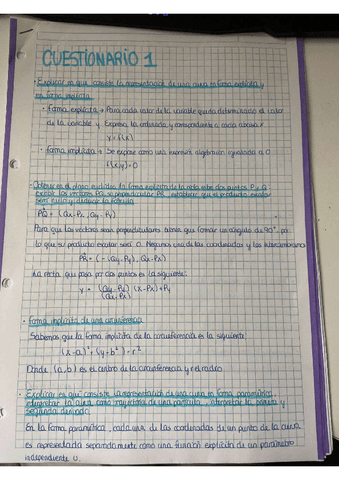 CUESTIONARIO 1
• Explicar en que consiste la representación de una curva en forma explícita y
en forma implícita
• forma explícita → Para cada valor de la variable queda determinado el valor
de la variable y. Expresa la ordenada y correspondiente a cada abcisa x
y = f(x)
• forma implícita → Se expone como una expresión algebraica igualada a 0
f(x,y)=0
Obtener en el plano euclídeo la forma explícita de la recta entre dos puntos P y Q
Escribir los vectores PQ su perpendicular PR, establecer que el producto escalar
sera nulo y deducir la fórmula
PQ = (Qx-Px, Qy-Py)
Para que los vectores sean perpendiculares tienen que formar un ángulo de 90°, por
lo que su producto escalar será 0. Negamos una de las coordenadas y las intercambiamos
PR = (-(Qy-Py), Qx-Px)
La recta que pasa por dos puntos es la siguiente:
y = (Qy-Py) (x-Px)+Py
(Qx-Px)
• Forma implícita de una circunferencia
Sabemos que la forma implícita de la circunferencia es la siguiente
(x-a)²+(y-b²)=r²
Donde (a,b) es el centro de la circunferencia y el radio
• Explicar en qué consiste la representación de una curva en forma paramétrica,
interpretar la curva como trayectoria de una partícula, interpretar la primera y
segunda derivada
En la forma paramétrica, cada una de las coordenadas de un punto de la curva
es representada separadamente como una función explícita de un parámetro
independiente u.